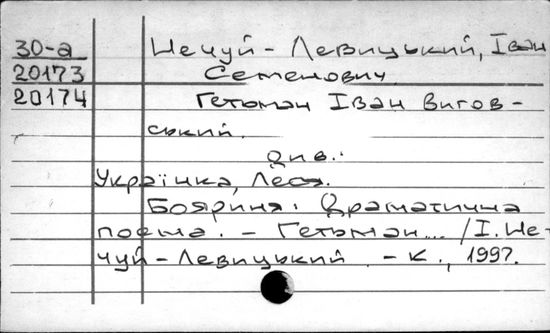 30-а Нечуй-Левицький, Іван
20173 Семенович
20174 Гетьман Іван Вигов-
ський.
див.:
Українка, Леся.
Бояриня: Драматична
поема. - Гетьман... / І. Не-
чуй-Левицький. - К., 1997.